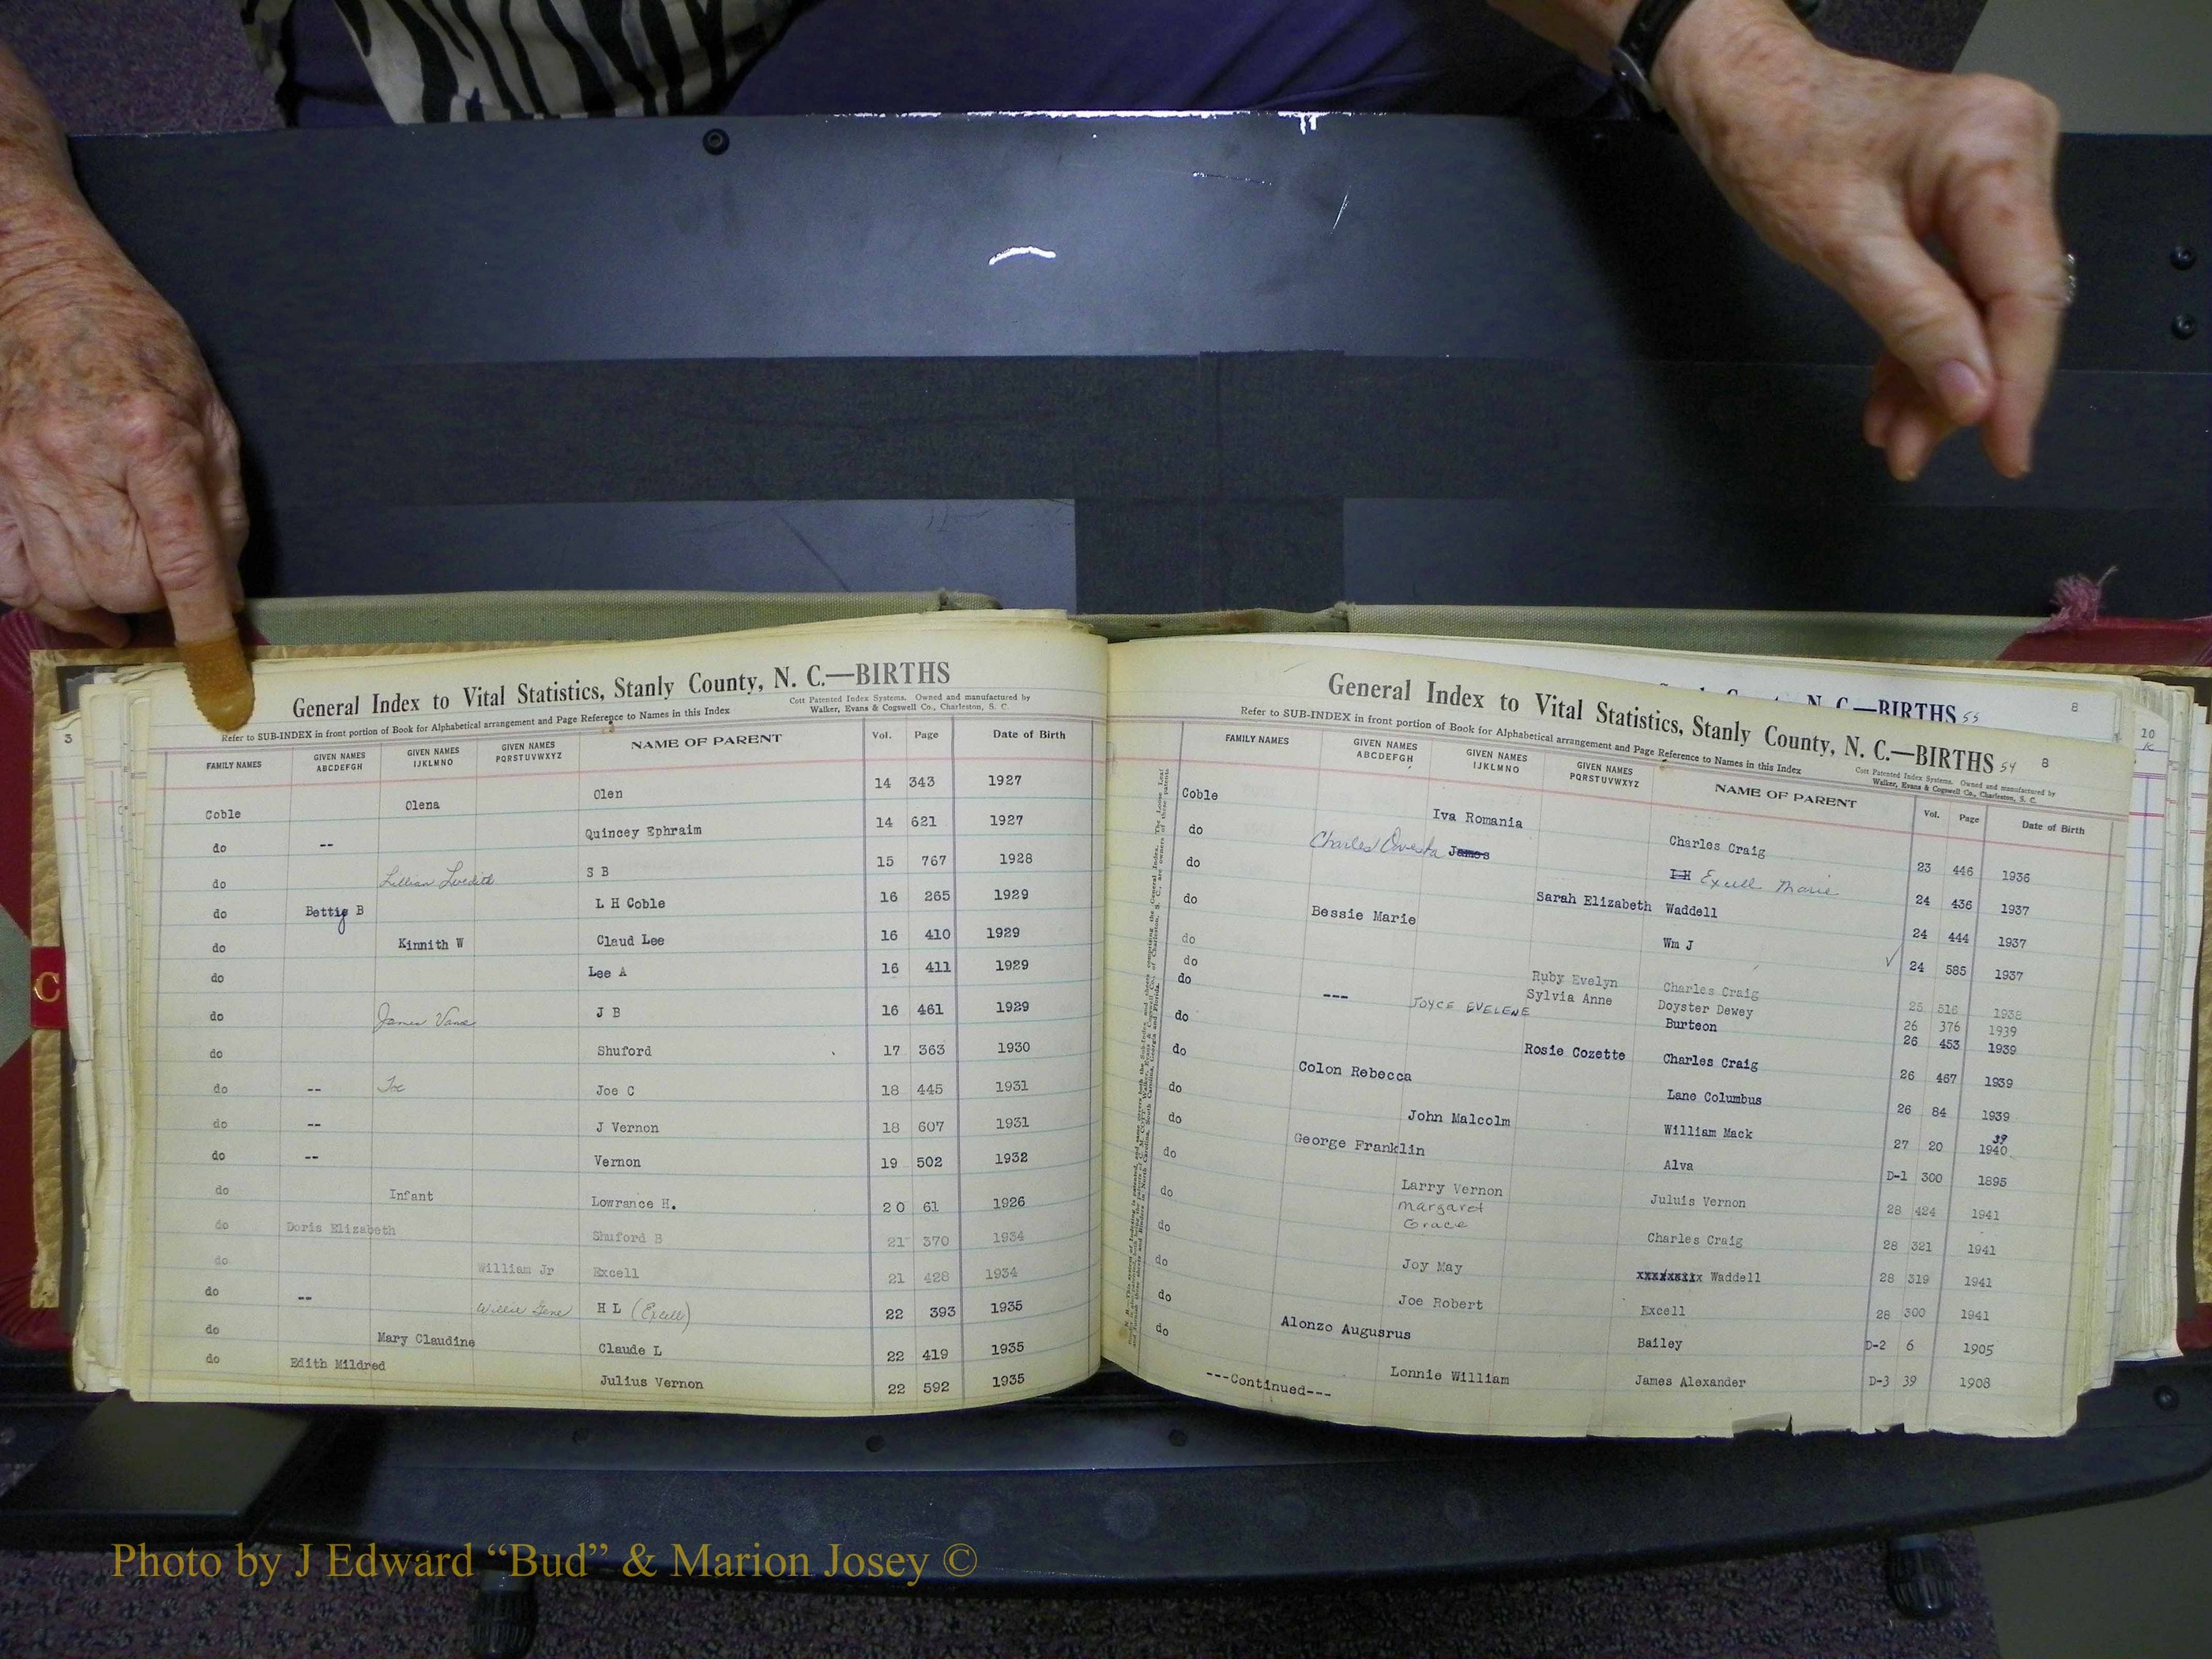 General Index to Vital Statistics, Stanly County, N. C.—BIRTHS
Refer to SUB-INDEX in front portion of Book for Alphabetical arrangement and Page Reference to Names in this Index
Cott Patented Index Systems. Owned and manufactured by
Walker, Evans & Cogswell Co., Charleston, S. C.
FAMILY NAMES GIVEN NAMES ABCDEFGH GIVEN NAMES IJKLMNO GIVEN NAMES PQRSTUVWXYZ NAME OF PARENT Vol. Page Date of Birth
Coble Olena Olen 14 343 1927
do -- Quincey Ephraim 14 621 1927
do Lillian S B 15 767 1928
do Bettie B L H Coble 16 265 1929
do Kinnith W Claud Lee 16 410 1929
do Lee A 16 411 1929
do James Vance J B 16 461 1929
do Shuford 17 363 1930
do -- Joe Joe C 18 445 1931
do -- J Vernon 18 607 1931
do -- Vernon 19 502 1932
do Infant Lowrance H. 20 61 1926
do Doris Elizabeth Shuford B 21 370 1934
do William Jr Excell 21 428 1934
do -- Willie Gene H L (Excell) 22 393 1935
do Mary Claudine Claude L 22 419 1935
do Edith Mildred Julius Vernon 22 592 1935
N. C.—BIRTHS 55 8
General Index to Vital Statistics, Stanly County, N. C.—BIRTHS 54 8
Refer to SUB-INDEX in front portion of Book for Alphabetical arrangement and Page Reference to Names in this Index
Cott Patented Index Systems. Owned and manufactured by
Walker, Evans & Cogswell Co., Charleston, S. C.
FAMILY NAMES GIVEN NAMES ABCDEFGH GIVEN NAMES IJKLMNO GIVEN NAMES PQRSTUVWXYZ NAME OF PARENT Vol. Page Date of Birth
Coble Iva Romania Charles Craig 23 446 1936
do Charles James I H Excell Marie 24 436 1937
do Sarah Elizabeth Waddell 24 444 1937
do Bessie Marie Wm J 24 585 1937
do Ruby Evelyn Charles Craig 25 516 1938
do Sylvia Anne Doyster Dewey 26 376 1939
do --- JOYCE EVELENE Burteon 26 453 1939
do Rosie Cozette Charles Craig 26 467 1939
do Colon Rebecca Lane Columbus 26 84 1939
do John Malcolm William Mack 27 20 1940 39
do George Franklin Alva D-1 300 1895
do Larry Vernon Juluis Vernon 28 424 1941
do Margaret Grace Charles Craig 28 321 1941
do Joy May Waddell 28 319 1941
do Joe Robert Excell 28 300 1941
do Alonzo Augusrus Bailey D-2 6 1905
do Lonnie William James Alexander D-3 39 1908
---Continued---
C
3
10
K
Photo by J Edward “Bud” & Marion Josey ©